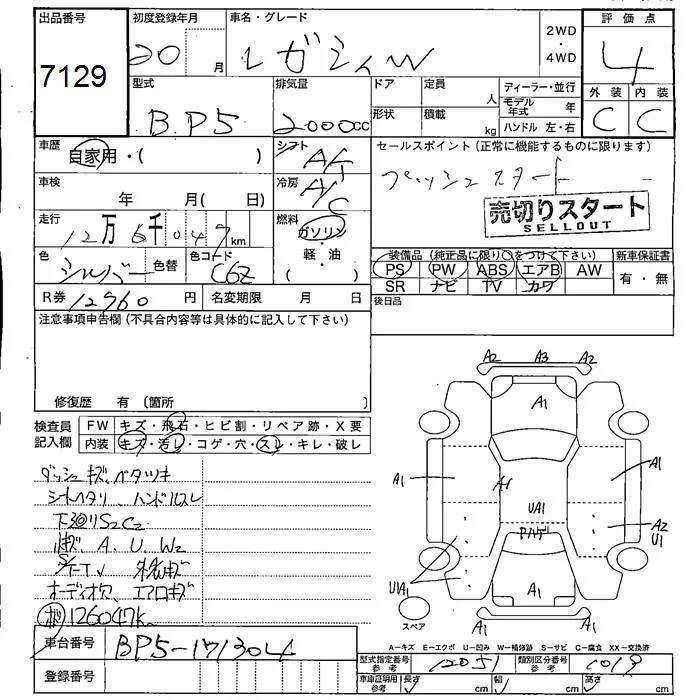 出品番号 初度登録年月 車名・グレード 評価点
7129 20 月 レガシィW 2WD・4WD 4
型式 排気量 ドア 定員 人 ディーラー・並行 外装 内装
BP5 2000cc 形状 積載 kg モデル年式 年 C C
ハンドル 左・右
車歴 自家用・( ) シフト A/T セールスポイント (正常に機能するものに限ります)
プッシュスタート
車検 年 月( 日) 冷房 A/C
売切りスタート
SELLOUT
走行 12万6千047km 燃料 ガソリン・軽・油( )
色 シルバー 色替 色コード C6Z
装備品 (純正品に限り○をつけて下さい) 新車保証書
PS PW ABS エアB AW 有・無
SR ナビ TV カワ
R券 12960円 名変期限 月 日 後日品
注意事項申告欄 (不具合内容等は具体的に記入して下さい)
修復歴 有 (箇所 )
検査員記入欄 FW キズ・飛石・ヒビ割・リペア跡・X要
内装 キズ・汚レ・コゲ・穴・スレ・キレ・破レ
ダッシュキズ、ベタツキ
シートヘタリ、ハンドルスレ
下廻りS2C2
A、U、W2
オーディオ欠、エアロキズ
126047k
A2 A3 A2
A1
A1 A1 A1
UA1
Pハゲ A2
U1
U1A1
A1
スペア
A1 A1
A−キズ E−エクボ U−凹み W−補修跡 S−サビ C−腐食 XX−交換済
車台番号 BP5-171304
型式指定番号参考 12051 類別区分番号参考 1019
登録番号
車庫証明用参考 長さ cm 幅 cm 高さ cm